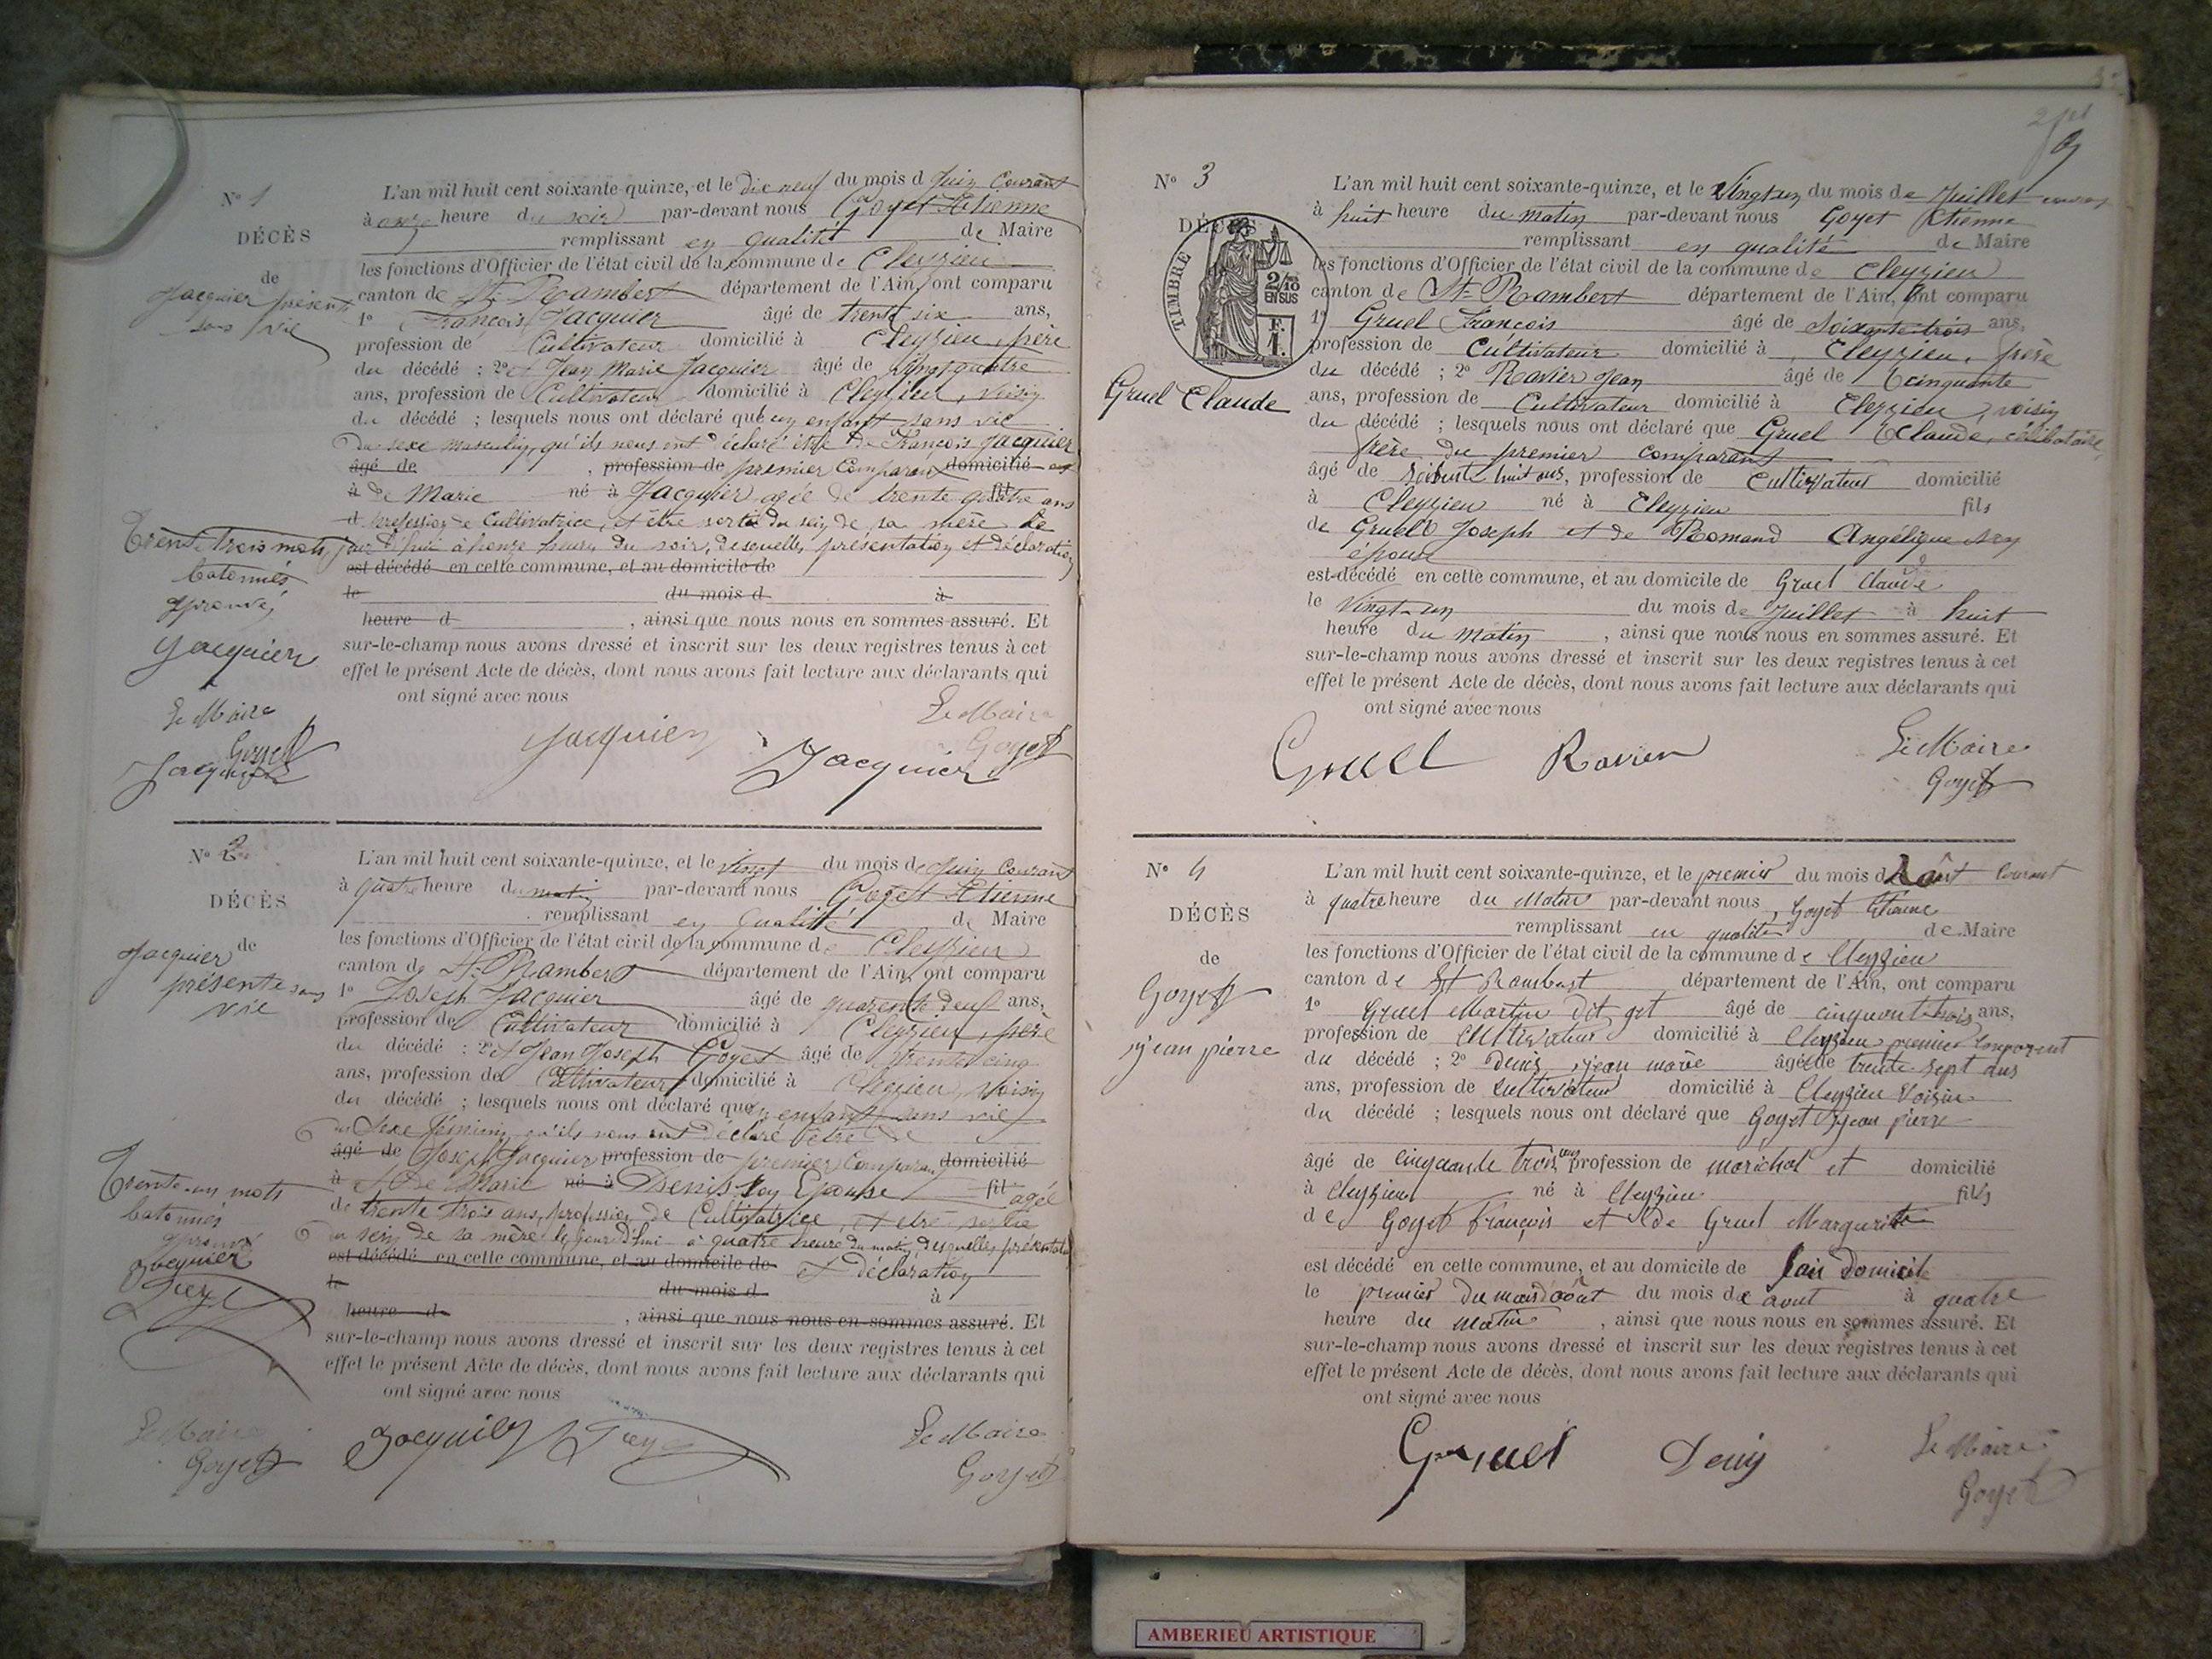 N° 1
DÉCÈS
de
Jacquier présent
sans vie
L'an mil huit cent soixante-quinze, et le dix neuf du mois d Juin Courant
à onze heure du soir par-devant nous Goyet Etienne
remplissant en qualité de Maire
les fonctions d'Officier de l'état civil de la commune de Cleyzieu
canton de St-Rambert département de l'Ain, ont comparu
1° François Jacquier âgé de trente six ans,
profession de Cultivateur domicilié à Cleyzieu, père
du décédé ; 2° et Jean Marie Jacquier âgé de vingt quatre
ans, profession de Cultivateur domicilié à Cleyzieu, voisin
du décédé ; lesquels nous ont déclaré que un enfant sans vie
du sexe masculin, qu'ils nous ont déclaré être de François Jacquier
âgé de , profession de premier Comparant domicilié
à de Marie né à Jacquier agée de trente quatre ans
d profession de Cultivatrice, et être sorti du sein de sa mère le
jour d'hui à honze heures du soir, desquelles présentation et déclaration
est décédé en cette commune, et au domicile de
le du mois d à
heure d , ainsi que nous nous en sommes assuré. Et
sur-le-champ nous avons dressé et inscrit sur les deux registres tenus à cet
effet le présent Acte de décès, dont nous avons fait lecture aux déclarants qui
ont signé avec nous
Trente trois mots
batonnés
aprouvés
Jacquier
Le Maire
Goyet
Jacquier
Jacquier
Jacquier
Le Maire
Goyet
N° 2
DÉCÈS
de
Jacquier
présente sans
vie
L'an mil huit cent soixante-quinze, et le vingt du mois de Juin Courant
à quatre heure du matin par-devant nous Goyet Etienne
remplissant en qualité de Maire
les fonctions d'Officier de l'état civil de la commune de Cleyzieu
canton de St-Rambert département de l'Ain, ont comparu
1° Joseph Jacquier âgé de quarente deux ans,
profession de Cultivateur domicilié à Cleyzieu, père
du décédé ; 2° et Jean Joseph Goyet âgé de trente cinq
ans, profession de Cultivateur domicilié à Cleyzieu, voisin
du décédé ; lesquels nous ont déclaré que un enfant sans vie
du Sexe féminin, qu'ils nous ont déclaré être de
âgé de Joseph Jacquier profession de premier Comparant domicilié
à et de Marie né à Denis son Epouse fil agée
de trente trois ans, profession de Cultivatrice, et etre sortie
du sein de sa mère le jour d'hui à quatre heure du matin, desquelles présentation
est décédé en cette commune, et au domicile de et déclaration
le du mois d à
heure d , ainsi que nous nous en sommes assuré. Et
sur-le-champ nous avons dressé et inscrit sur les deux registres tenus à cet
effet le présent Acte de décès, dont nous avons fait lecture aux déclarants qui
ont signé avec nous
Trente-un mots
batonnés
aprouvé
Jacquier
Le Maire
Goyet
Jacquier
Le Maire
Goyet
N° 3
DÉCÈS
TIMBRE
2/10
EN SUS
F.
1.
Gruel Claude
L'an mil huit cent soixante-quinze, et le vingt un du mois de Juillet courant
à huit heure du matin par-devant nous Goyet Etienne
remplissant en qualité de Maire
les fonctions d'Officier de l'état civil de la commune de Cleyzieu
canton de St-Rambert département de l'Ain, ont comparu
1° Gruel François âgé de Soixante-trois ans,
profession de Cultivateur domicilié à Cleyzieu, frère
du décédé ; 2° Ravier Jean âgé de Cinquante
ans, profession de Cultivateur domicilié à Cleyzieu, voisin
du décédé ; lesquels nous ont déclaré que Gruel Claude, célibataire,
frère du premier comparant
âgé de soixante huit ans, profession de Cultivateur domicilié
à Cleyzieu né à Cleyzieu fils
de Gruel Joseph et de Romand Angélique son
épouse
est décédé en cette commune, et au domicile de Gruel Claude
le vingt-un du mois de Juillet à huit
heure du matin , ainsi que nous nous en sommes assuré. Et
sur-le-champ nous avons dressé et inscrit sur les deux registres tenus à cet
effet le présent Acte de décès, dont nous avons fait lecture aux déclarants qui
ont signé avec nous
Gruel Ravier
Le Maire
Goyet
N° 4
DÉCÈS
de
Goyet
jean pierre
L'an mil huit cent soixante-quinze, et le premier du mois d Août Courant
à quatre heure du Matin par-devant nous Goyet Etienne
remplissant en qualité de Maire
les fonctions d'Officier de l'état civil de la commune de Cleyzieu
canton de St Rambert département de l'Ain, ont comparu
1° Gruel Martin dit get âgé de cinquante trois ans,
profession de Cultivateur domicilié à Cleyzieu premier Comparent
du décédé ; 2° Denis jean marie âgé de trente sept ans
ans, profession de Cultivateur domicilié à Cleyzieu Voisin
du décédé ; lesquels nous ont déclaré que Goyet jean pierre
âgé de cinquante trois ans profession de maréchal et domicilié
à Cleyzieu né à Cleyzieu fils
de Goyet François et de Gruel Marguerite
est décédé en cette commune, et au domicile de son domicile
le premier du mois d'août du mois de aout à quatre
heure du matin , ainsi que nous nous en sommes assuré. Et
sur-le-champ nous avons dressé et inscrit sur les deux registres tenus à cet
effet le présent Acte de décès, dont nous avons fait lecture aux déclarants qui
ont signé avec nous
Gruel Denis
Le Maire
Goyet
AMBERIEU ARTISTIQUE